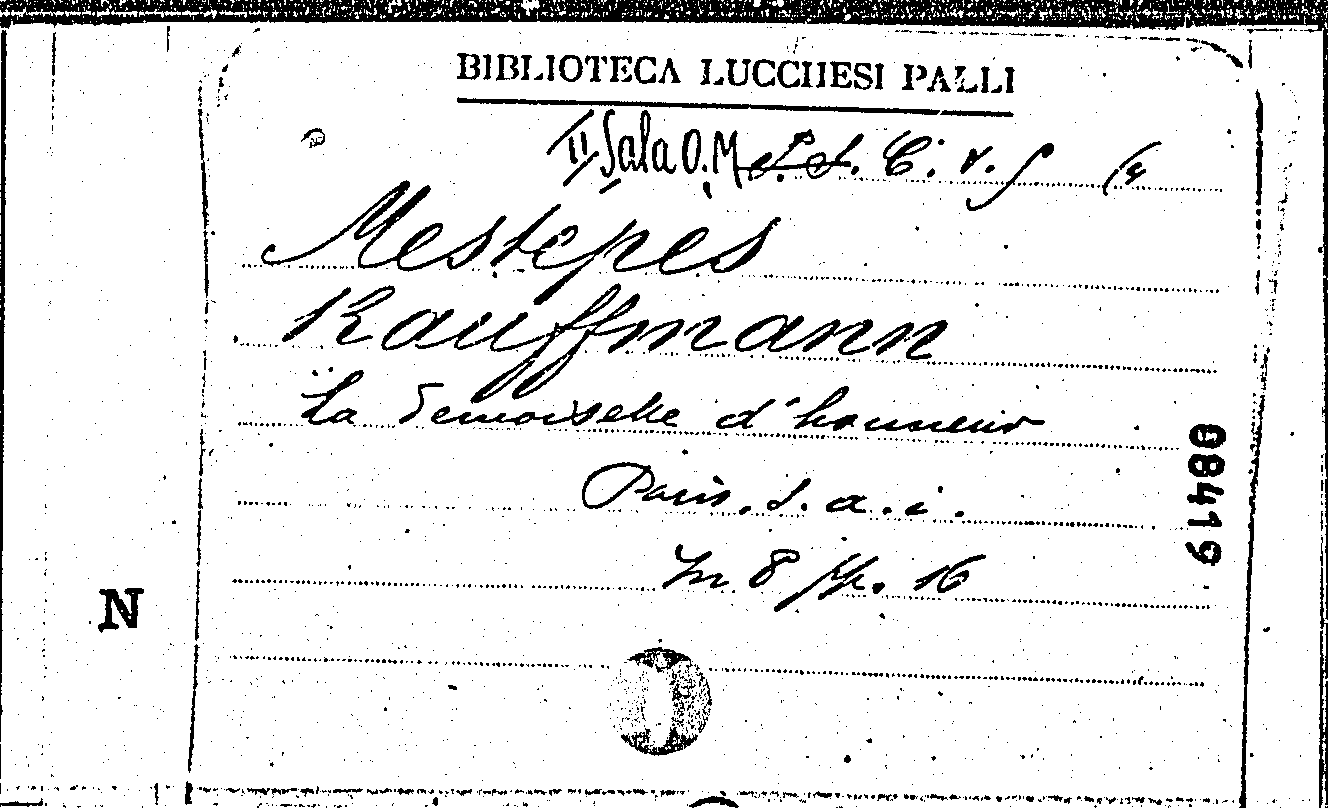 BIBLIOTECA LUCCHESI PALLI
II Sala O. M. C. v. f (4
Mestepes
Kauffmann
La demoiselle d'honneur
Paris. s. a. i.
In 8 pp. 16
08419
N